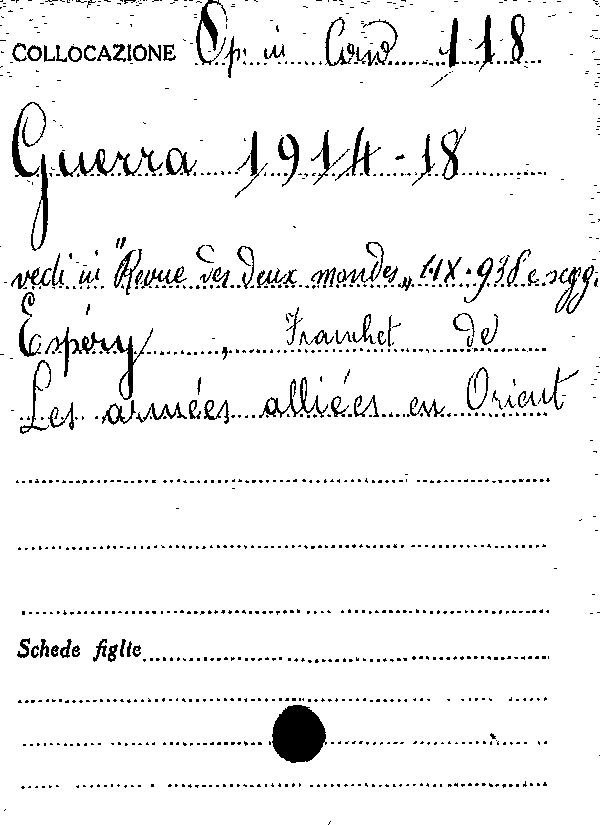 COLLOCAZIONE Op. in Corso 118
Guerra 1914-18
vedi in "Revue des deux mondes„ 1.IX.938 e segg.
Espéry, Franchet de
Les armées alliées en Orient
Schede figlie